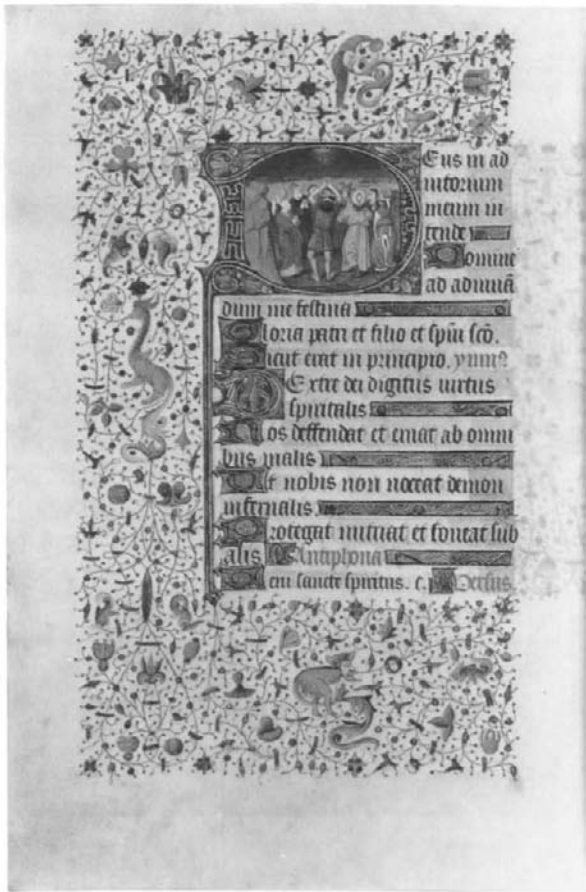 Eus in ad
iutorium
meum in
tende
Domine
ad adiuuā
dum me festina
Gloria patri et filio et spūi scō.
Sicut erat in principio. ympꝰ
Dextre dei digitus uirtus
spiritalis
Nos deffendat et eruat ab omni
bus malis
Ut nobis non noceat demon
infernalis
Protegat nutriat et foueat sub
alis Antiphona
Ueni sancte spiritus. c. p Versus